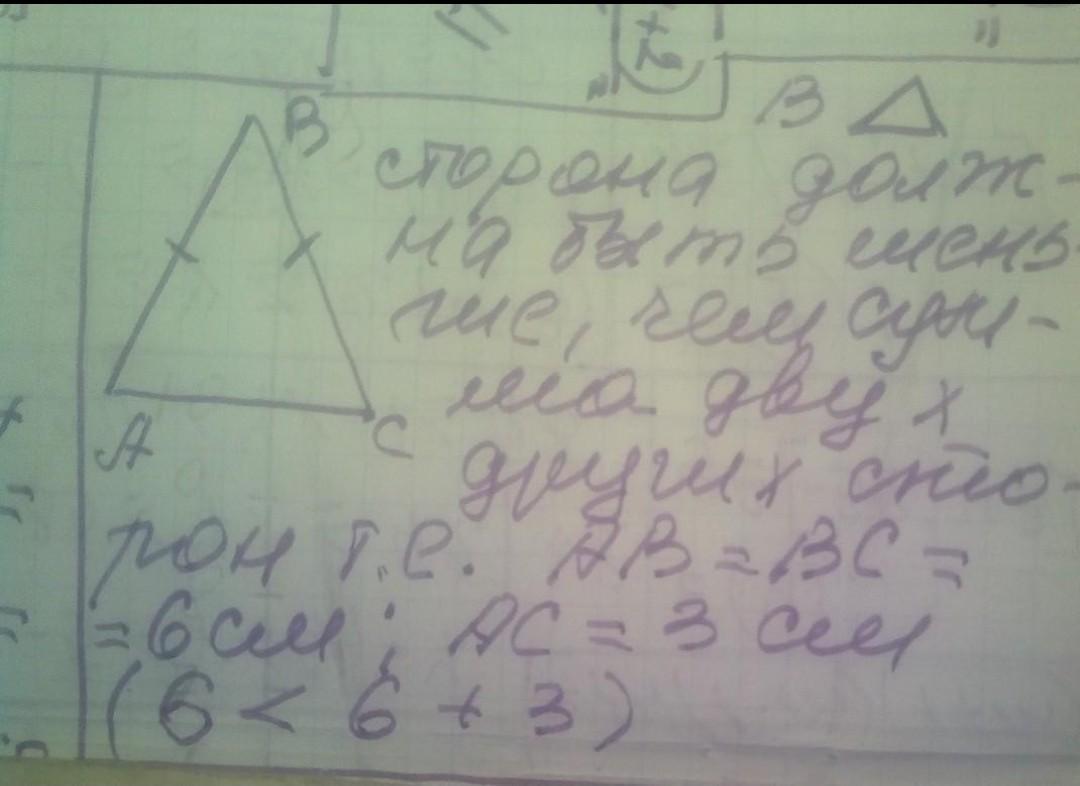 В △
B
сторона долж-
на быть мень-
ше, чем сум-
ма двух
A
C
других сто-
рон т.е. AB = BC =
= 6 см ; AC = 3 см
(6 < 6 + 3)